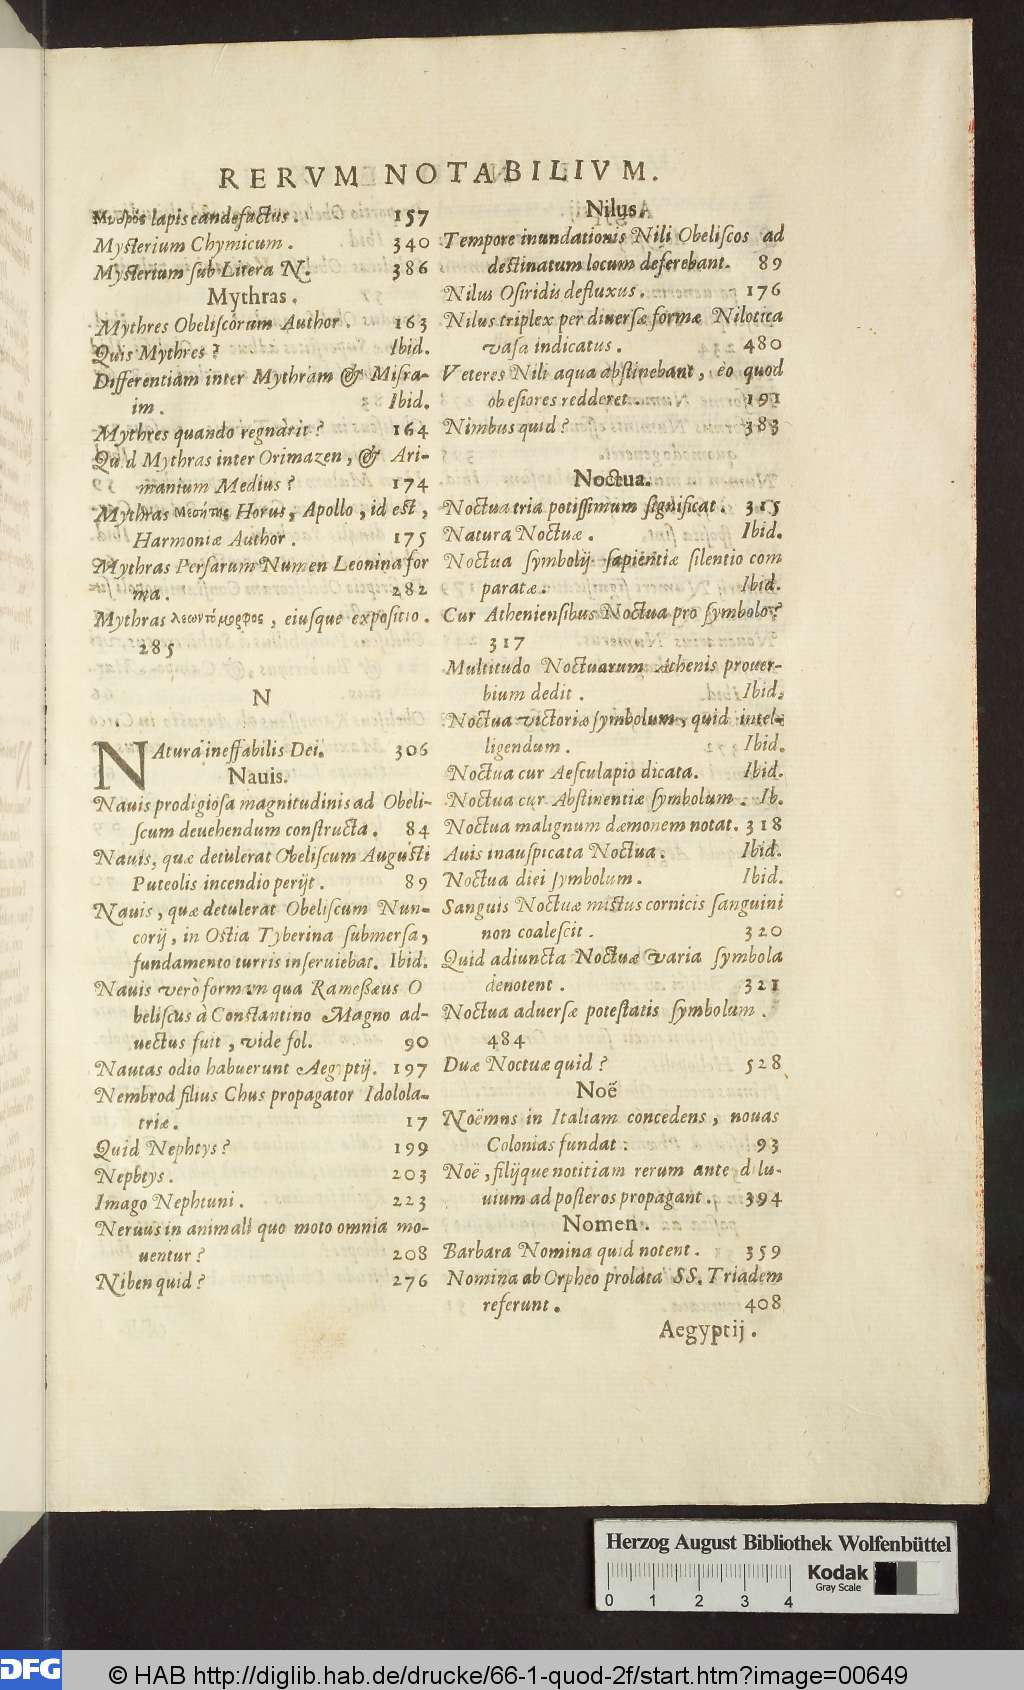 RERVM NOTABILIVM.
Μυδρὸς lapis candefactus. 157
Mysterium Chymicum. 340
Mysterium sub Litera N. 386
Mythras.
Mythres Obeliscorum Author. 163
Quis Mythres? Ibid.
Differentiam inter Mythram & Misra-
im. Ibid.
Mythres quando regnârit? 164
Qu d Mythras inter Orimazen, & Ari-
manium Medius? 174
Mythras Μεσίτης Horus, Apollo, id est,
Harmoniæ Author. 175
Mythras Persarum Numen Leonina for
ma. 282
Mythras λεωντόμορφος, eiusque expositio.
285
N
NAtura ineffabilis Dei. 306
Nauis.
Nauis prodigiosa magnitudinis ad Obeli-
scum deuehendum constructa. 84
Nauis, quæ detulerat Obeliscum Augusti
Puteolis incendio perijt. 89
Nauis, quæ detulerat Obeliscum Nun-
corij, in Ostia Tyberina submersa,
fundamento turris inseruiebat. Ibid.
Nauis verò formam qua Rameßæus O
beliscus à Constantino Magno ad-
uectus fuit, vide fol. 90
Nautas odio habuerunt Aegyptij. 197
Nembrod filius Chus propagator Idolola-
triæ. 17
Quid Nephtys? 199
Nephtys. 203
Imago Nephtuni. 223
Neruus in animali quo moto omnia mo-
uentur? 208
Niben quid? 276
Nilus.
Tempore inundationis Nili Obeliscos ad
destinatum locum deferebant. 89
Nilus Osiridis defluxus. 176
Nilus triplex per diuersæ formæ Nilotica
vasa indicatus. 480
Veteres Nili aqua abstinebant, eò quod
obesiores redderet. 191
Nimbus quid? 383
Noctua.
Noctua tria potissimum significat. 315
Natura Noctuæ. Ibid.
Noctua symbolij sapientiæ silentio com
paratæ. Ibid.
Cur Atheniensibus Noctua pro symbolo?
317
Multitudo Noctuarum Athenis prouer-
bium dedit. Ibid.
Noctua victoriæ symbolum, quid intel-
ligendum. Ibid.
Noctua cur Aesculapio dicata. Ibid.
Noctua cur Abstinentiæ symbolum. Ib.
Noctua malignum dæmonem notat. 318
Auis inauspicata Noctua. Ibid.
Noctua diei symbolum. Ibid.
Sanguis Noctuæ mistus cornicis sanguini
non coalescit. 320
Quid adiuncta Noctuæ varia symbola
denotent. 321
Noctua aduersæ potestatis symbolum.
484
Duæ Noctuæ quid? 528
Noë
Noëmns in Italiam concedens, nouas
Colonias fundat. 93
Noë, filijque notitiam rerum ante d lu-
uium ad posteros propagant. 394
Nomen.
Barbara Nomina quid notent. 359
Nomina ab Orpheo prolata SS. Triadem
referunt. 408
Aegyptij.
Herzog August Bibliothek Wolfenbüttel
Kodak
Gray Scale
0 1 2 3 4
DFG © HAB http://diglib.hab.de/drucke/66-1-quod-2f/start.htm?image=00649